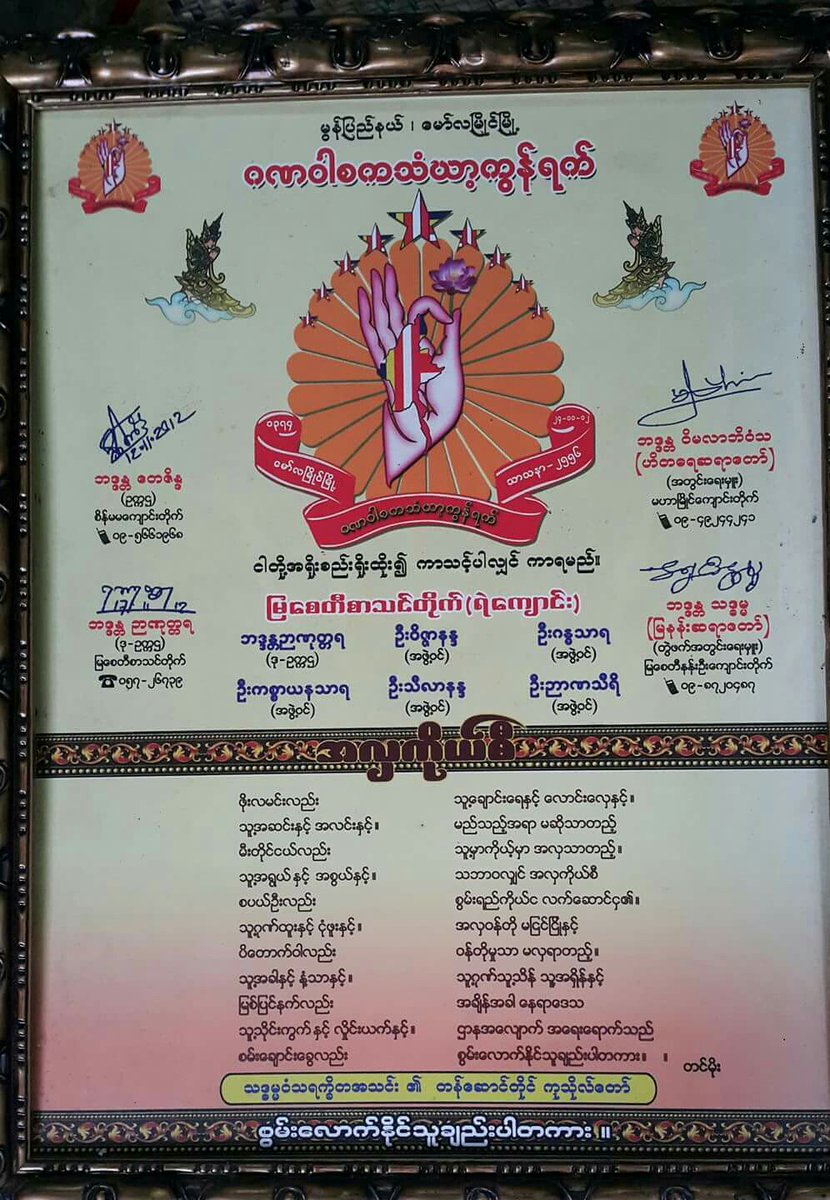 မွန်ပြည်နယ်၊ မော်လမြိုင်မြို့
ဂဏဝါစကသံဃာ့ကွန်ရက်
၁၃၇၄
၂၄-၁၁-၁၂
မော်လမြိုင်မြို့
သာသနာ-၂၅၅၆
ဂဏဝါစကသံဃာ့ကွန်ရက်
12.10.2012
ဘဒ္ဒန္တ တေဇိန္ဒ
(ဥက္ကဋ္ဌ)
စိန်မမကျောင်းတိုက်
၀၉-၅၆၆၁၉၆၈
ဘဒ္ဒန္တ ဝိမလာဘိဝံသ
(ဟိတဓရဆရာတော်)
(အတွင်းရေးမှူး)
မဟာမြိုင်ကျောင်းတိုက်
၀၉-၄၉၂၄၄၂၄၁
ငါတို့အရိုးစည်းရိုးထိုး၍ ကာသင့်ပါလျှင် ကာရမည်။
မြစေတီစာသင်တိုက်(ရဲကျောင်း)
ဘဒ္ဒန္တ ဉာဏုတ္တရ
(ဒု-ဥက္ကဋ္ဌ)
မြစေတီစာသင်တိုက်
၀၅၇-၂၆၇၃၉
ဘဒ္ဒန္တဉာဏုတ္တရ ဦးဝိဇ္ဇာနန္ဒ ဦးဂန္ဓသာရ
(ဒု-ဥက္ကဋ္ဌ) (အဖွဲ့ဝင်) (အဖွဲ့ဝင်)
ဦးကစ္စာယနသာရ ဦးသီလာနန္ဒ ဦးဉာဏသီရိ
(အဖွဲ့ဝင်) (အဖွဲ့ဝင်) (အဖွဲ့ဝင်)
ဘဒ္ဒန္တ သဒ္ဓမ္မ
(မြနန်းဆရာတော်)
(တွဲဖက်အတွင်းရေးမှူး)
မြစေတီနန်းဦးကျောင်းတိုက်
၀၉-၈၇၂၀၄၈၇
အလှကိုယ်စီ
ဖိုးလမင်းလည်း
သူ့အဆင်းနှင့် အလင်းနှင့်။
မီးတိုင်ငယ်လည်း
သူ့အရွယ်နှင့် အစွယ်နှင့်။
စပယ်ဦးလည်း
သူ့ဂုဏ်ထူးနှင့် ငုံဖူးနှင့်။
ပိတောက်ဝါလည်း
သူ့အခါနှင့် နံ့သာနှင့်။
မြစ်ပြင်နက်လည်း
သူ့သိုင်းကွက်နှင့် လှိုင်းယက်နှင့်။
စမ်းချောင်းခွေလည်း
သူ့ချောင်းရေနှင့် လောင်းလှေနှင့်။
မည်သည့်အရာ မဆိုသာတည့်
သူ့မှာကိုယ့်မှာ အလှသာတည့်။
သဘာဝလျှင် အလှကိုယ်စီ
စွမ်းရည်ကိုယ်င လက်ဆောင်ငှ၏။
အလှဝန်တို မငြင်ငြိုနှင့်
ဝန်တိုမှုသာ မလှရာတည့်။
သူ့ဂုဏ်သူ့သိန် သူ့အရှိန်နှင့်
အချိန်အခါ နေရာဒေသ
ဌာနအလျောက် အရေးရောက်သည်
စွမ်းလောက်နိုင်သူချည်းပါတကား။ ။
တင်မိုး
သဒ္ဓမ္မဝံသရက္ခိတအသင်း ၏ တန်ဆောင်တိုင် ကုသိုလ်တော်
စွမ်းလောက်နိုင်သူချည်းပါတကား ။